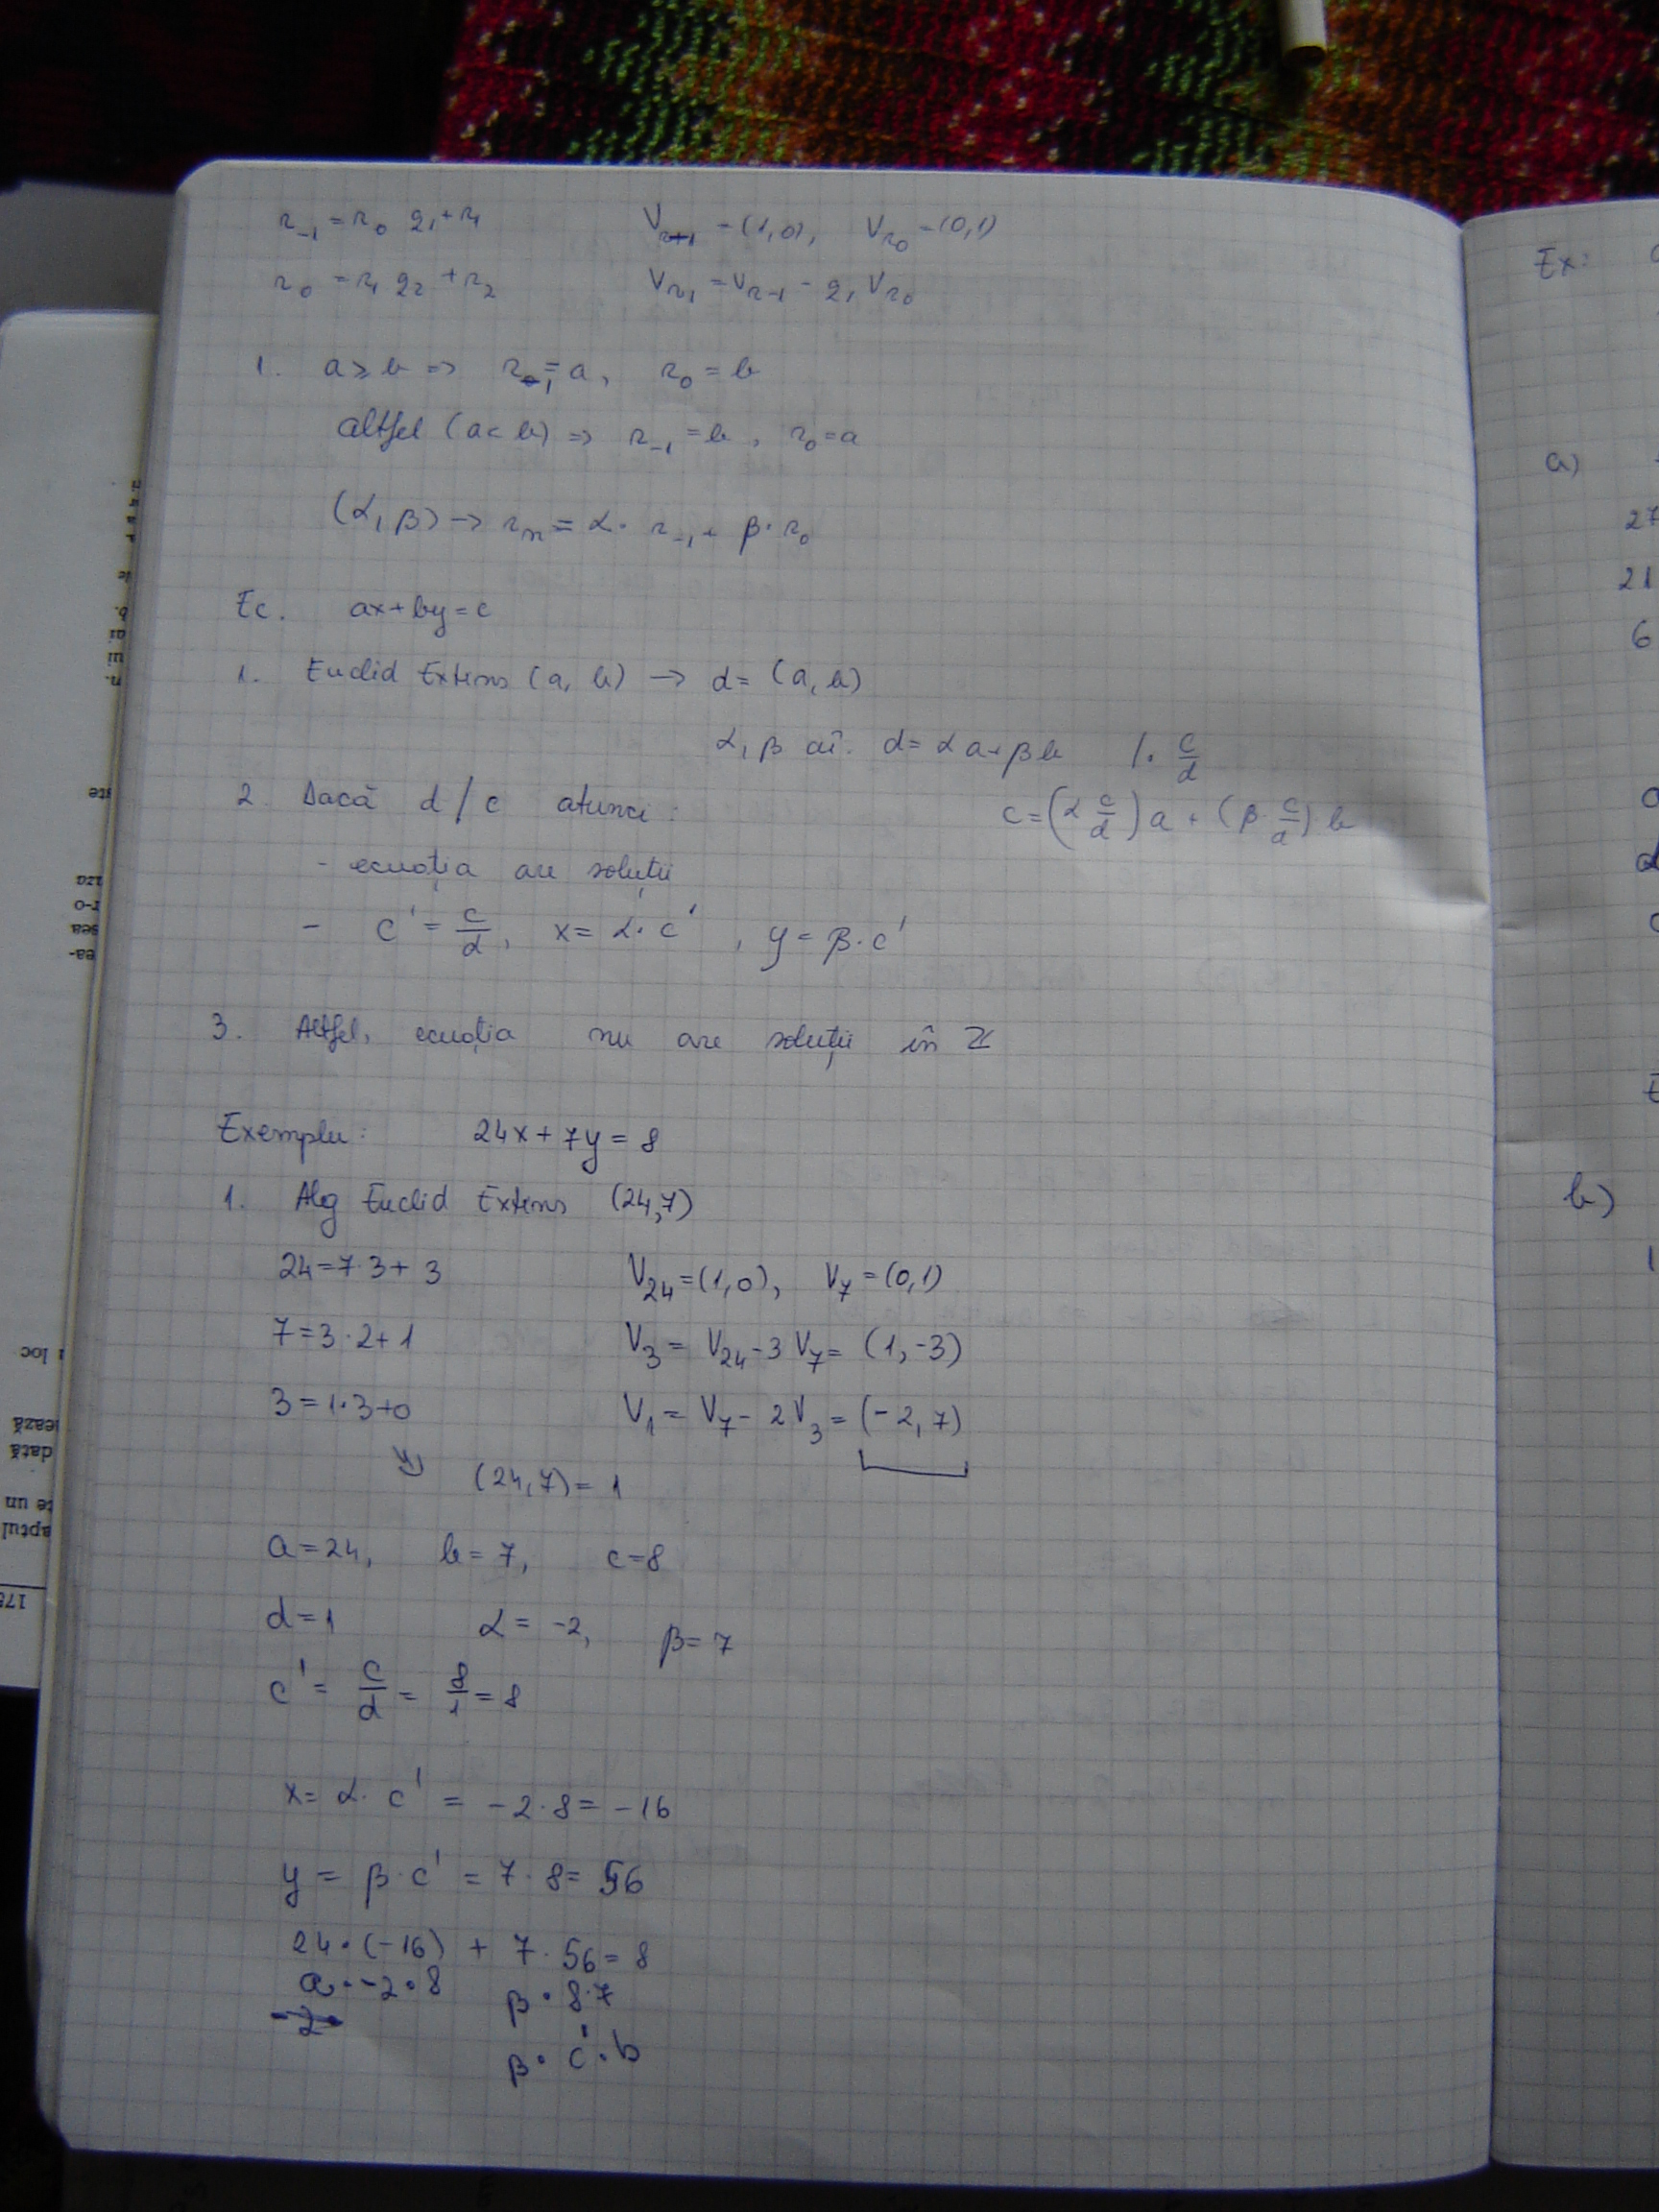 r₋₁ = r₀ q₁ + r₁    V_{r-1} = (1,0), V_{r₀} = (0,1)
r₀ = r₁ q₂ + r₂    V_{r₁} = V_{r-1} - q₁ V_{r₀}
1. a ≥ b => r₋₁ = a, r₀ = b
altfel (a < b) => r₋₁ = b, r₀ = a
(α, β) → rₙ = α · r₋₁ + β · r₀
Ec. ax + by = c
1. Euclid Extins (a, b) → d = (a, b)
α, β aî. d = α a + β b  / · c/d
2 Dacă d / c atunci :    c = (α c/d) a + (β · c/d) · b
- ecuația are soluții
- c' = c/d, x = α · c', y = β · c'
3. Altfel, ecuația nu are soluții în ℤ
Exemplu: 24x + 7y = 8
1. Alg Euclid Extins (24,7)
24 = 7·3 + 3    V₂₄ = (1,0), V₇ = (0,1)
7 = 3·2 + 1    V₃ = V₂₄ - 3 V₇ = (1,-3)
3 = 1·3 + 0    V₁ = V₇ - 2 V₃ = (-2, 7)
(24,7) = 1
a = 24, b = 7, c = 8
d = 1    α = -2, β = 7
c' = c/d = 8/1 = 8
x = α · c' = -2 · 8 = -16
y = β · c' = 7 · 8 = 56
24 · (-16) + 7 · 56 = 8
a · -2 · 8    β · 8·7
β · c' · b
Ex:
a)
27
21
6
b)
1
ște
sea
ea-
loc
ează
dată
te un
aptul
178